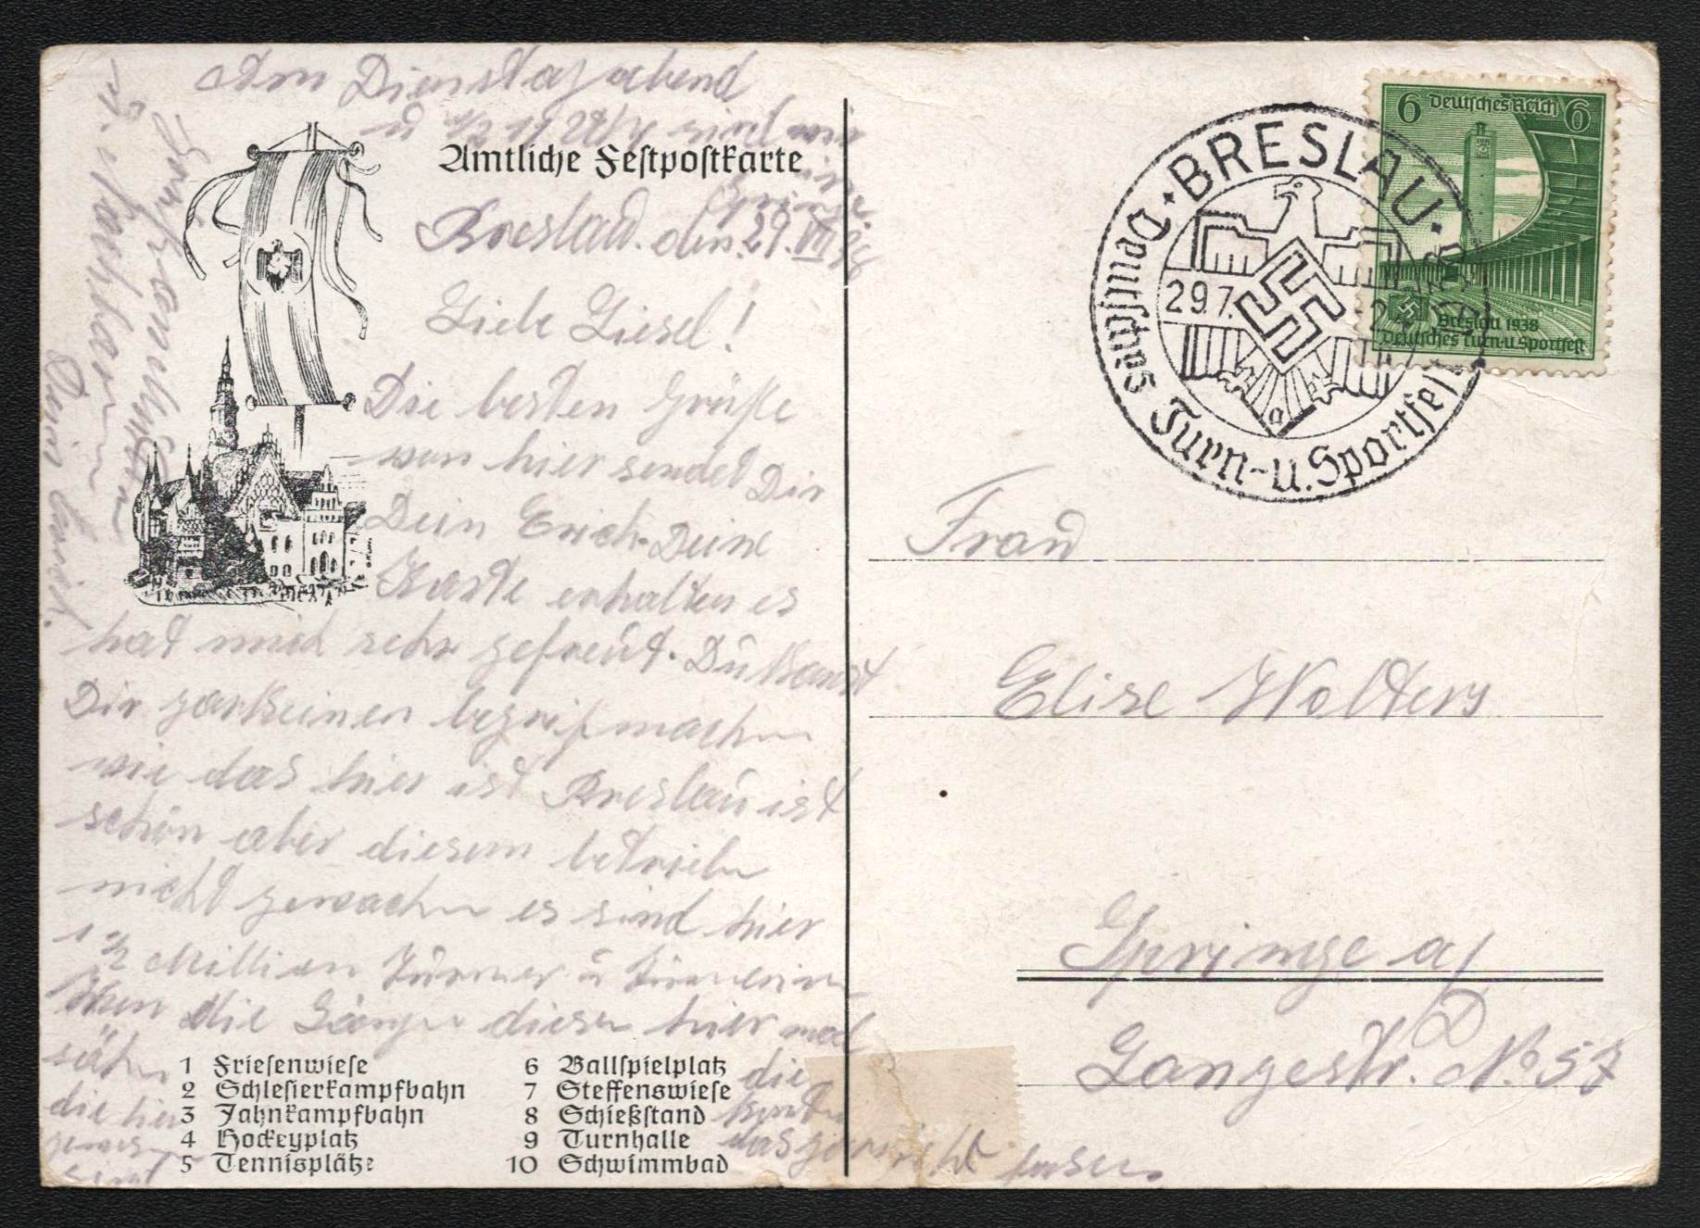 Am Dienstag abend
u ½ 11 Uhr sind wir
in
Springe.
Amtliche Festpostkarte
Breslau. den. 29. VII 38
Liebe Liesel!
Die besten Grüße
von hier sendet Dir
Dein Erich. Deine
Karte erhalten es
hat mich sehr gefreut. Du kanst
Dir garkeinen begrif machen
wie das hier ist Breslau ist
schön aber diesem betrieb
nicht gewachsen es sind hier
1½ Million Turner u Turnerin-
nen die
diese hier mal
sähen
die hier
die
das gar nicht fassen
sind
1 Friesenwiese
2 Schlesierkampfbahn
3 Jahnkampfbahn
4 Hockeyplatz
5 Tennisplätze
6 Ballspielplatz
7 Steffenswiese
8 Schießstand
9 Turnhalle
10 Schwimmbad
Dein Erich.
BRESLAU
Deutsches Turn- u. Sportfest
29.7.
6 Deutsches Reich 6
Breslau 1938
Deutsches Turn- u. Sportfest
Frau
Elise Wolters
Springe a/
D
Langestr. No 57